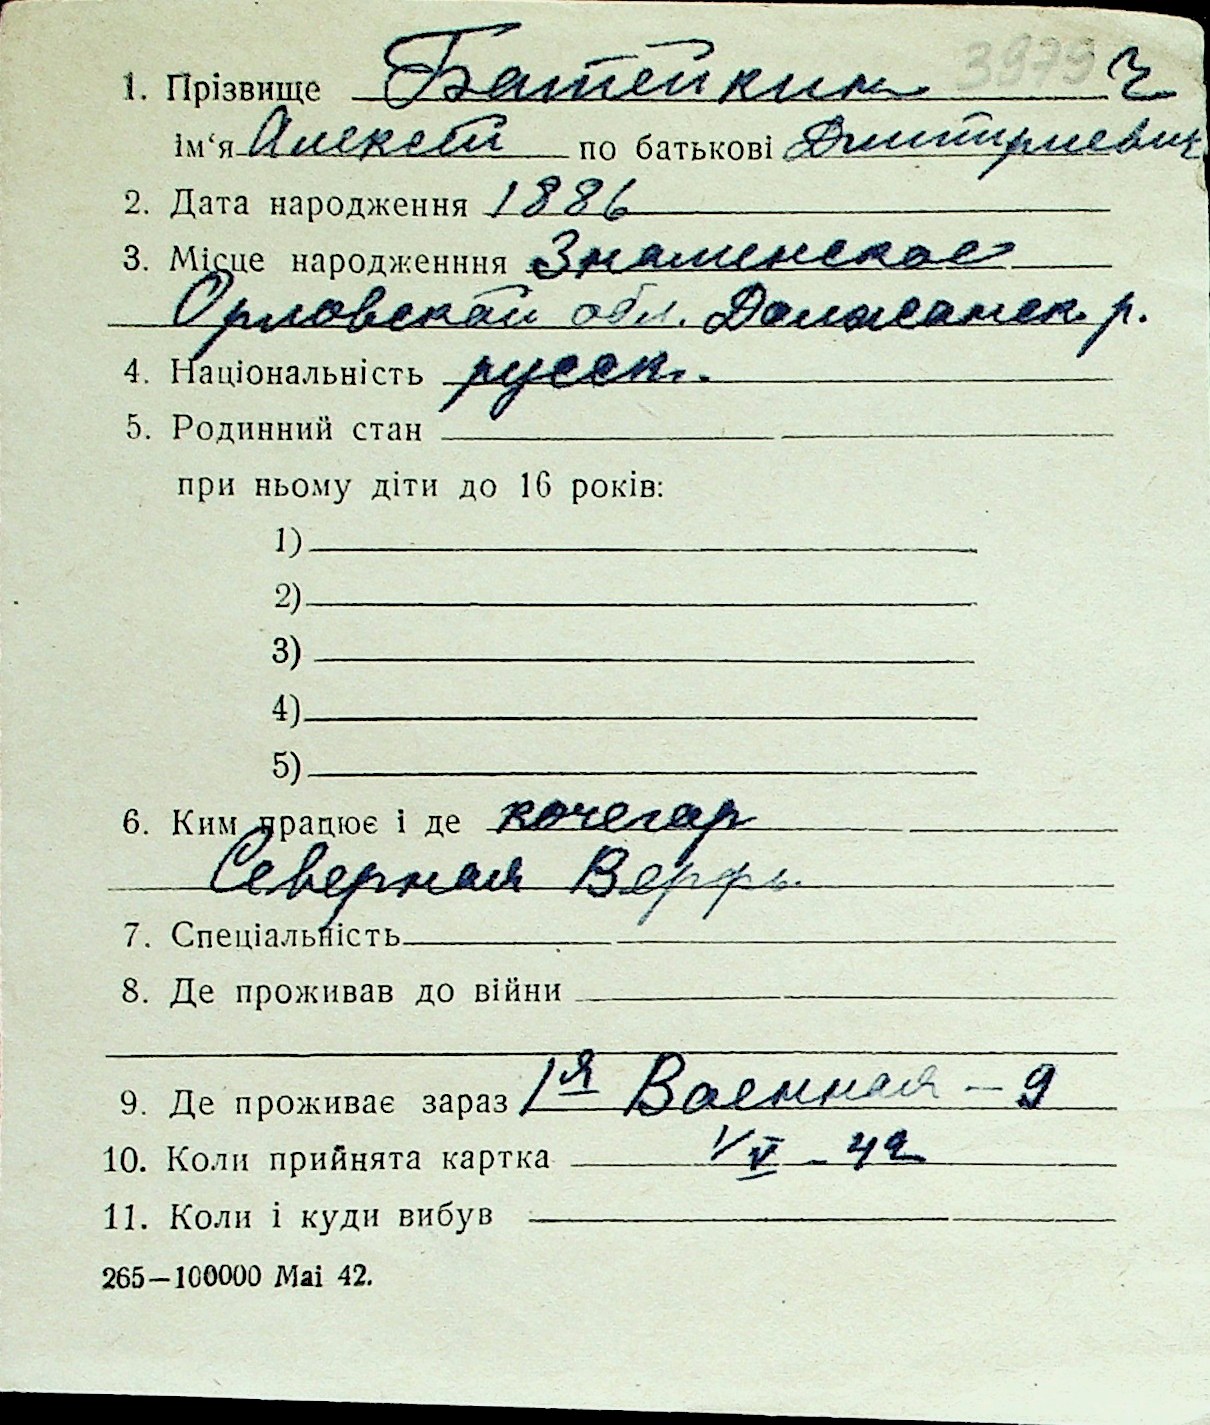 3979 ч
1. Прізвище Батейкин
ім‘я Алексей по батькові Дмитриевич
2. Дата народження 1886
3. Місце народженння Знаменское
Орловской обл. Должанск. р.
4. Національність русск.
5. Родинний стан
при ньому діти до 16 років:
1)
2)
3)
4)
5)
6. Ким працює і де кочегар
Северная Верфь
7. Спеціальність
8. Де проживав до війни
9. Де проживає зараз 1я Военная – 9
10. Коли прийнята картка 1/V – 42
11. Коли і куди вибув
265—100000 Mai 42.